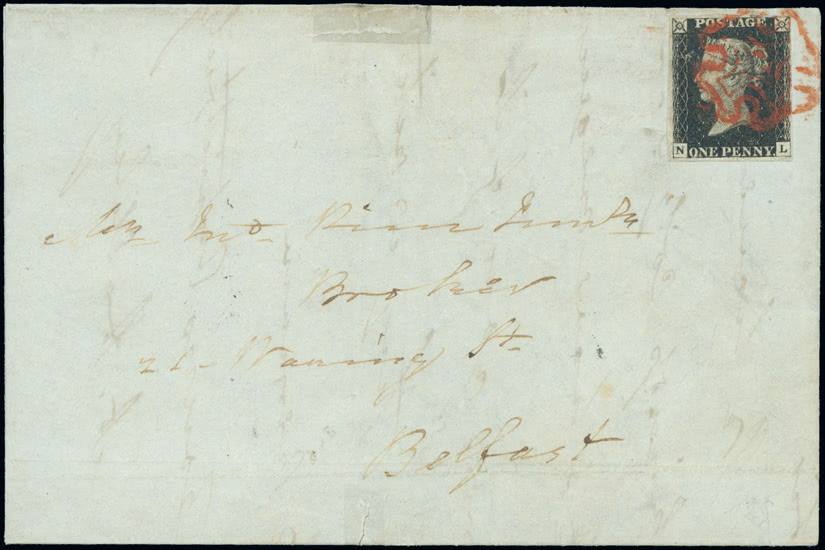 POSTAGE
N ONE PENNY L
Mr Jno.
Broker
21 Waring St
Belfast